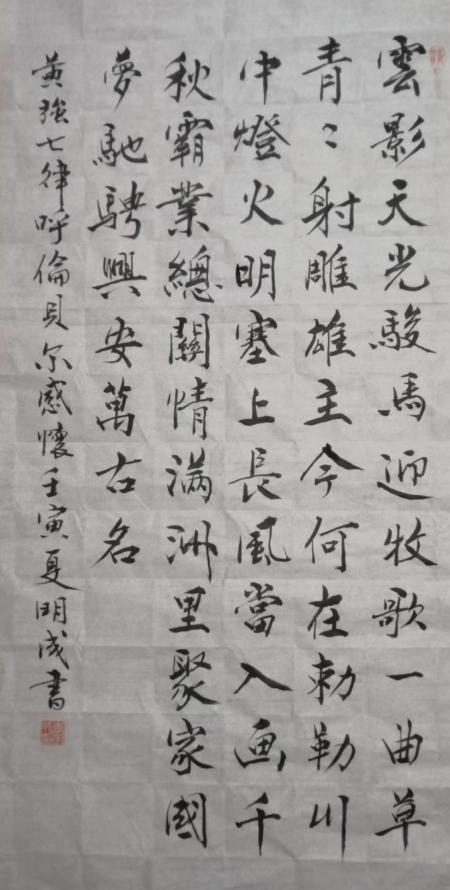 雲影天光駿馬迎牧歌一曲草
青〻射雕雄主今何在勅勒川
中燈火明塞上長風當入画千
秋霸業總關情满洲里聚家國
夢馳騁興安萬古名
黄强七律呼倫貝尔感懷壬寅夏明成書